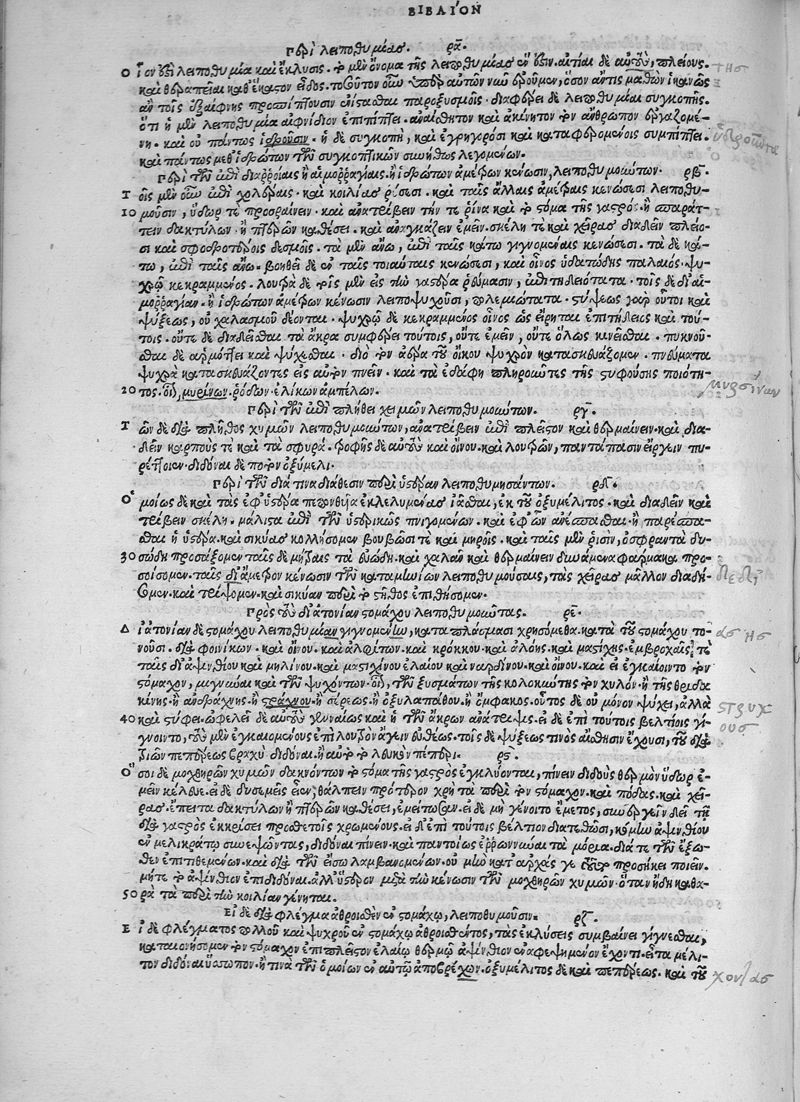 ΒΙΒΛΙΟΝ
Περὶ λειποθυμίας. ρα.
Οἷον δεῖ λειποθυμία καὶ ἔκλυσις. τὸ μὲν ὄνομα τῆς λειποθυμίας ἓν ἔστιν. αἰτίαι δὲ αὐτοῦ, πλείους.
καὶ θεραπεῖαι καθ' ἕκαστον εἶδος. τοσοῦτον οὖν ὑπὲρ αὐτῶν νῦν ἐροῦμεν, ὅσον ἄν τις μαθὼν ἱκανῶς
ἂν τοῖς ἐξαίφνης προσπίπτουσιν ἐνίστασθαι παροξυσμοῖς. διαφέρει δὲ λειποθυμίαι συγκοπῆς.
ὅτι ἡ μὲν λειποθυμία αἰφνίδιον ἐπιπίπτει. ἀναίσθητον καὶ ἀκίνητον τὸν ἄνθρωπον ἐργαζομέ-
νη. καὶ οὐ πάντως ἱδροῦσιν. ἡ δὲ συγκοπὴ, καὶ ἐγρηγορόσι καὶ καταφερομένοις συμπίπτει.
καὶ πάντως μεθ' ἱδρώτων τῶν συγκοπτικῶν συνήθως λεγομένων.
Περὶ τῶν ἐπὶ διαρροίαις ἢ αἱμορραγίαις. ἢ ἱδρώτων ἀμέτρων κένωσιν, λειποθυμούντων. ρβ.
Τοῖς μὲν οὖν ἐπὶ χολέραις. καὶ κοιλίας ῥύσεσι. καὶ ταῖς ἄλλαις ἀμέτραις κενώσεσι λειποθυ-
10 μοῦσιν, ὕδωρ τε προσραίνειν. καὶ ἀνατρίβειν τήν τε ῥῖνα καὶ τὸ στόμα τῆς γαστρός. ἢ σπαράτ-
τειν δακτύλων. ἢ πτερῶν καθέσει. καὶ ἀναγκάζειν ἐμεῖν. σκέλη τε καὶ χεῖρας διαδεῖν πλείο-
σι καὶ σφοδροτέροις δεσμοῖς. τὰ μὲν ἄνω, ἐπὶ ταῖς κάτω γιγνομέναις κενώσεσι. τὰ δὲ κά-
τω, ἐπὶ ταῖς ἄνω. βοηθεῖ δὲ ἐν ταῖς τοιαύταις κενώσεσι, καὶ οἶνος ὑδατώδης παλαιός. ψυ-
χρῷ κεκραμμένος. λουτρὰ δὲ τοῖς μὲν εἰς τὴν γαστέρα ῥεύμασιν, ἐπιτηδειότατα. τοῖς δὲ δι' αἱ-
μορραγίαν. ἢ ἱδρώτων ἀμέτρων κένωσιν λειποψυχοῦσι, πολεμιώτατα. στύψεως γὰρ οὗτοι καὶ
ψύξεως, οὐ χαλασμοῦ δέονται. ψυχρῷ δὲ κεκραμμένος οἶνος ὡς εἴρηται ἐπιτήδειος καὶ τού-
τοις. οὔτε δὲ διαδεῖσθαι τὰ ἄκρα συμφέρει τούτοις, οὔτε ἐμεῖν, οὔτε ὅλως κινεῖσθαι. πυκνοῦ-
σθαι δὲ ἁρμόττει καὶ ψύχεσθαι. διὸ τὸν ἀέρα τοῦ οἴκου ψυχρὸν κατασκευάζομεν. πνεύματα
ψυχρὰ κατασκευάζοντες εἰς αὐτὸν πνεῖν. καὶ τὰ ἐδάφη πληροῦντες τῆς στυφούσης ποιότη-
20 τος. οἷον, μυρίνων. ῥόδων. ἑλίκων ἀμπέλων.
Περὶ τῶν ἐπὶ πλήθει χυμῶν λειποθυμούντων. ργ.
Τῶν δὲ διὰ πλῆθος χυμῶν λειποθυμούντων, ἀνατρίβειν ἐπὶ πλεῖστον καὶ θερμαίνειν. καὶ δια-
δεῖν καρποὺς τε καὶ τὰ σφυρά. τροφῆς δὲ αὐτοὺς καὶ οἴνου. καὶ λουτρῶν, παντάπασιν εἴργειν πυ-
ρέττοιεν διδόναι δὲ ποτὸν ὀξύμελι.
Περὶ τῶν διά τινα διάθεσιν περὶ ὑστέραν λειποθυμησάντων. ρδ.
Ὁμοίως δὲ καὶ τὰς ἐφ' ὑστέρᾳ πεπονθυίᾳ ἐκλελυμένας ἰᾶσθαι, ἐκ τοῦ ὀξυμέλιτος. καὶ διαδεῖν καὶ
τρίβειν σκέλη. μάλιστα ἐπὶ τῶν ὑστερικῶς πνιγομένων. καὶ ἐφ' ὧν ἀνέσπασται. ἢ παρέσπα-
σται ἡ ὑστέρα. καὶ σικύας κολλήσομεν βουβῶσί τε καὶ μηροῖς. καὶ ταῖς μὲν ῥισὶν, ὀσφραντὰ δυ-
σώδη προσάξομεν ταῖς δὲ μήτραις τὰ εὐώδη. καὶ χαλᾶν καὶ θερμαίνειν δυνάμενα φάρμακα προ-
30 σοίσομεν. ταῖς δι' ἄμετρον κένωσιν τῶν καταμηνίων λειποθυμούσαις, τὰς χεῖρας μᾶλλον διαδή-
σομεν. καὶ τρίψομεν. καὶ σικύαν περὶ τὸ στῆθος ἐπιθήσομεν.
Πρὸς τοὺς δι' ἀτονίαν στομάχου λειποθυμοῦντας. ρε.
Δι' ἀτονίαν δὲ στομάχου λειποθυμίαν γιγνομένην, καταπλάσμασι χρησόμεθα. κατὰ τοῦ στομάχου το-
νοῦσι. διὰ φοινίκων. καὶ οἴνου. καὶ ἀλφίτων. καὶ κρόκου. καὶ ἀλόης. καὶ μαστίχης. ἐμβροχαῖς τε
ταῖς δι' ἀψινθίου καὶ μηλίνου. καὶ μαστιχίνου ἐλαίου καὶ ναρδίνου. καὶ οἴνου. καὶ εἰ ἐγκαίοιντο τὸν
στόμαχον, μιγνύναι καὶ τῶν ψυχόντων. οἷον, τῶν ξυσμάτων τῆς κολοκύντης τὸν χυλόν. ἢ τῆς θριδα-
κίνης. ἢ ἀνδράχνης. ἢ στρύχνου. ἢ σέρεως. ἢ ὀξυλαπάθου. ἢ ὄμφακος. οὗτος δὲ οὐ μόνον ψύχει, ἀλλὰ
40 καὶ στύφει. ὠφελεῖ δὲ αὐτοὺς γενναίως καὶ ἡ τῶν ἄκρων ἀνάτριψις. εἰ δὲ ἐπὶ τούτοις βελτίοις γί-
γνοιντο, τοὺς μὲν ἐγκαιομένους ἐπὶ λουτρὸν ἄγειν εὐθέως. τοῖς δὲ ψύξεώς τινος αἴσθησιν ἔχουσι, τοῦ διὰ
τριῶν πεπέρεως βραχὺ διδόναι. ἢ αὐτὸ τὸ λευκὸν πέπερι. ρϛ.
Ὅσοι δὲ μοχθηρῶν χυμῶν δακνόντων τὸ στόμα τῆς γαστρὸς ἐγκλύονται, πίνειν διδοὺς θερμὸν ὕδωρ ἐ-
μεῖν κέλευε. εἰ δὲ δυσεμεῖς εἶεν, θάλπειν πρότερον χρὴ τὰ περὶ τὸν στόμαχον. καὶ πόδας. καὶ χεῖ-
ρας. ἔπειτα δακτύλων ἢ πτερῶν καθέσει, ἐμείτωσαν. εἰ δὲ μὴ γένοιτο ἔμετος, συνεργεῖν δεῖ τῇ
διὰ γαστρὸς ἐκκρίσει προσθέτοις χρωμένους. εἰ δ' ἐπὶ τούτοις βέλτιον διατεθῶσι, κόμην ἀψινθίου
ἐν μελικράτῳ συνεψῶντας, διδόναι πίνειν. καὶ παντοίως ἐρρωννύναι τὰ μόρια. διά τε τῶν ἔξω-
θεν ἐπιτιθεμένων. καὶ διὰ τῶν εἴσω λαμβανομένων. οὐ μὴν κατ' ἀρχάς γε οὕτω προσήκει ποιεῖν.
μήτε τὸ ἀψίνθιον ἐπιδιδόναι. ἀλλ' ὕστερον μετὰ τὴν κένωσιν τῶν μοχθηρῶν χυμῶν. ὅταν ἤδη καθα-
50 ρὰ τὰ περὶ τὴν κοιλίαν γένηται.
Εἰ δὲ διὰ φλέγμα ἀθροισθὲν ἐν στομάχῳ, λειποθυμοῦσιν. ρζ.
Εἰ δὲ φλέγματος πολλοῦ καὶ ψυχροῦ ἐν στομάχῳ ἀθροισθέντος, τὰς ἐκλύσεις συμβαίνει γίγνεσθαι,
καταιονήσομεν τὸν στόμαχον ἐπὶ πλεῖστον ἐλαίῳ θερμῷ ἀψίνθιον ἐναφεψημένον ἔχοντι. εἶτα μελί-
τον διδόναι ὕσσωπον. ἤ τινα τῶν ὁμοίων ἐν αὐτῷ ἀποβρέχων. ὀξυμέλιτος δὲ καὶ πεπέρεως. καὶ τοῦ